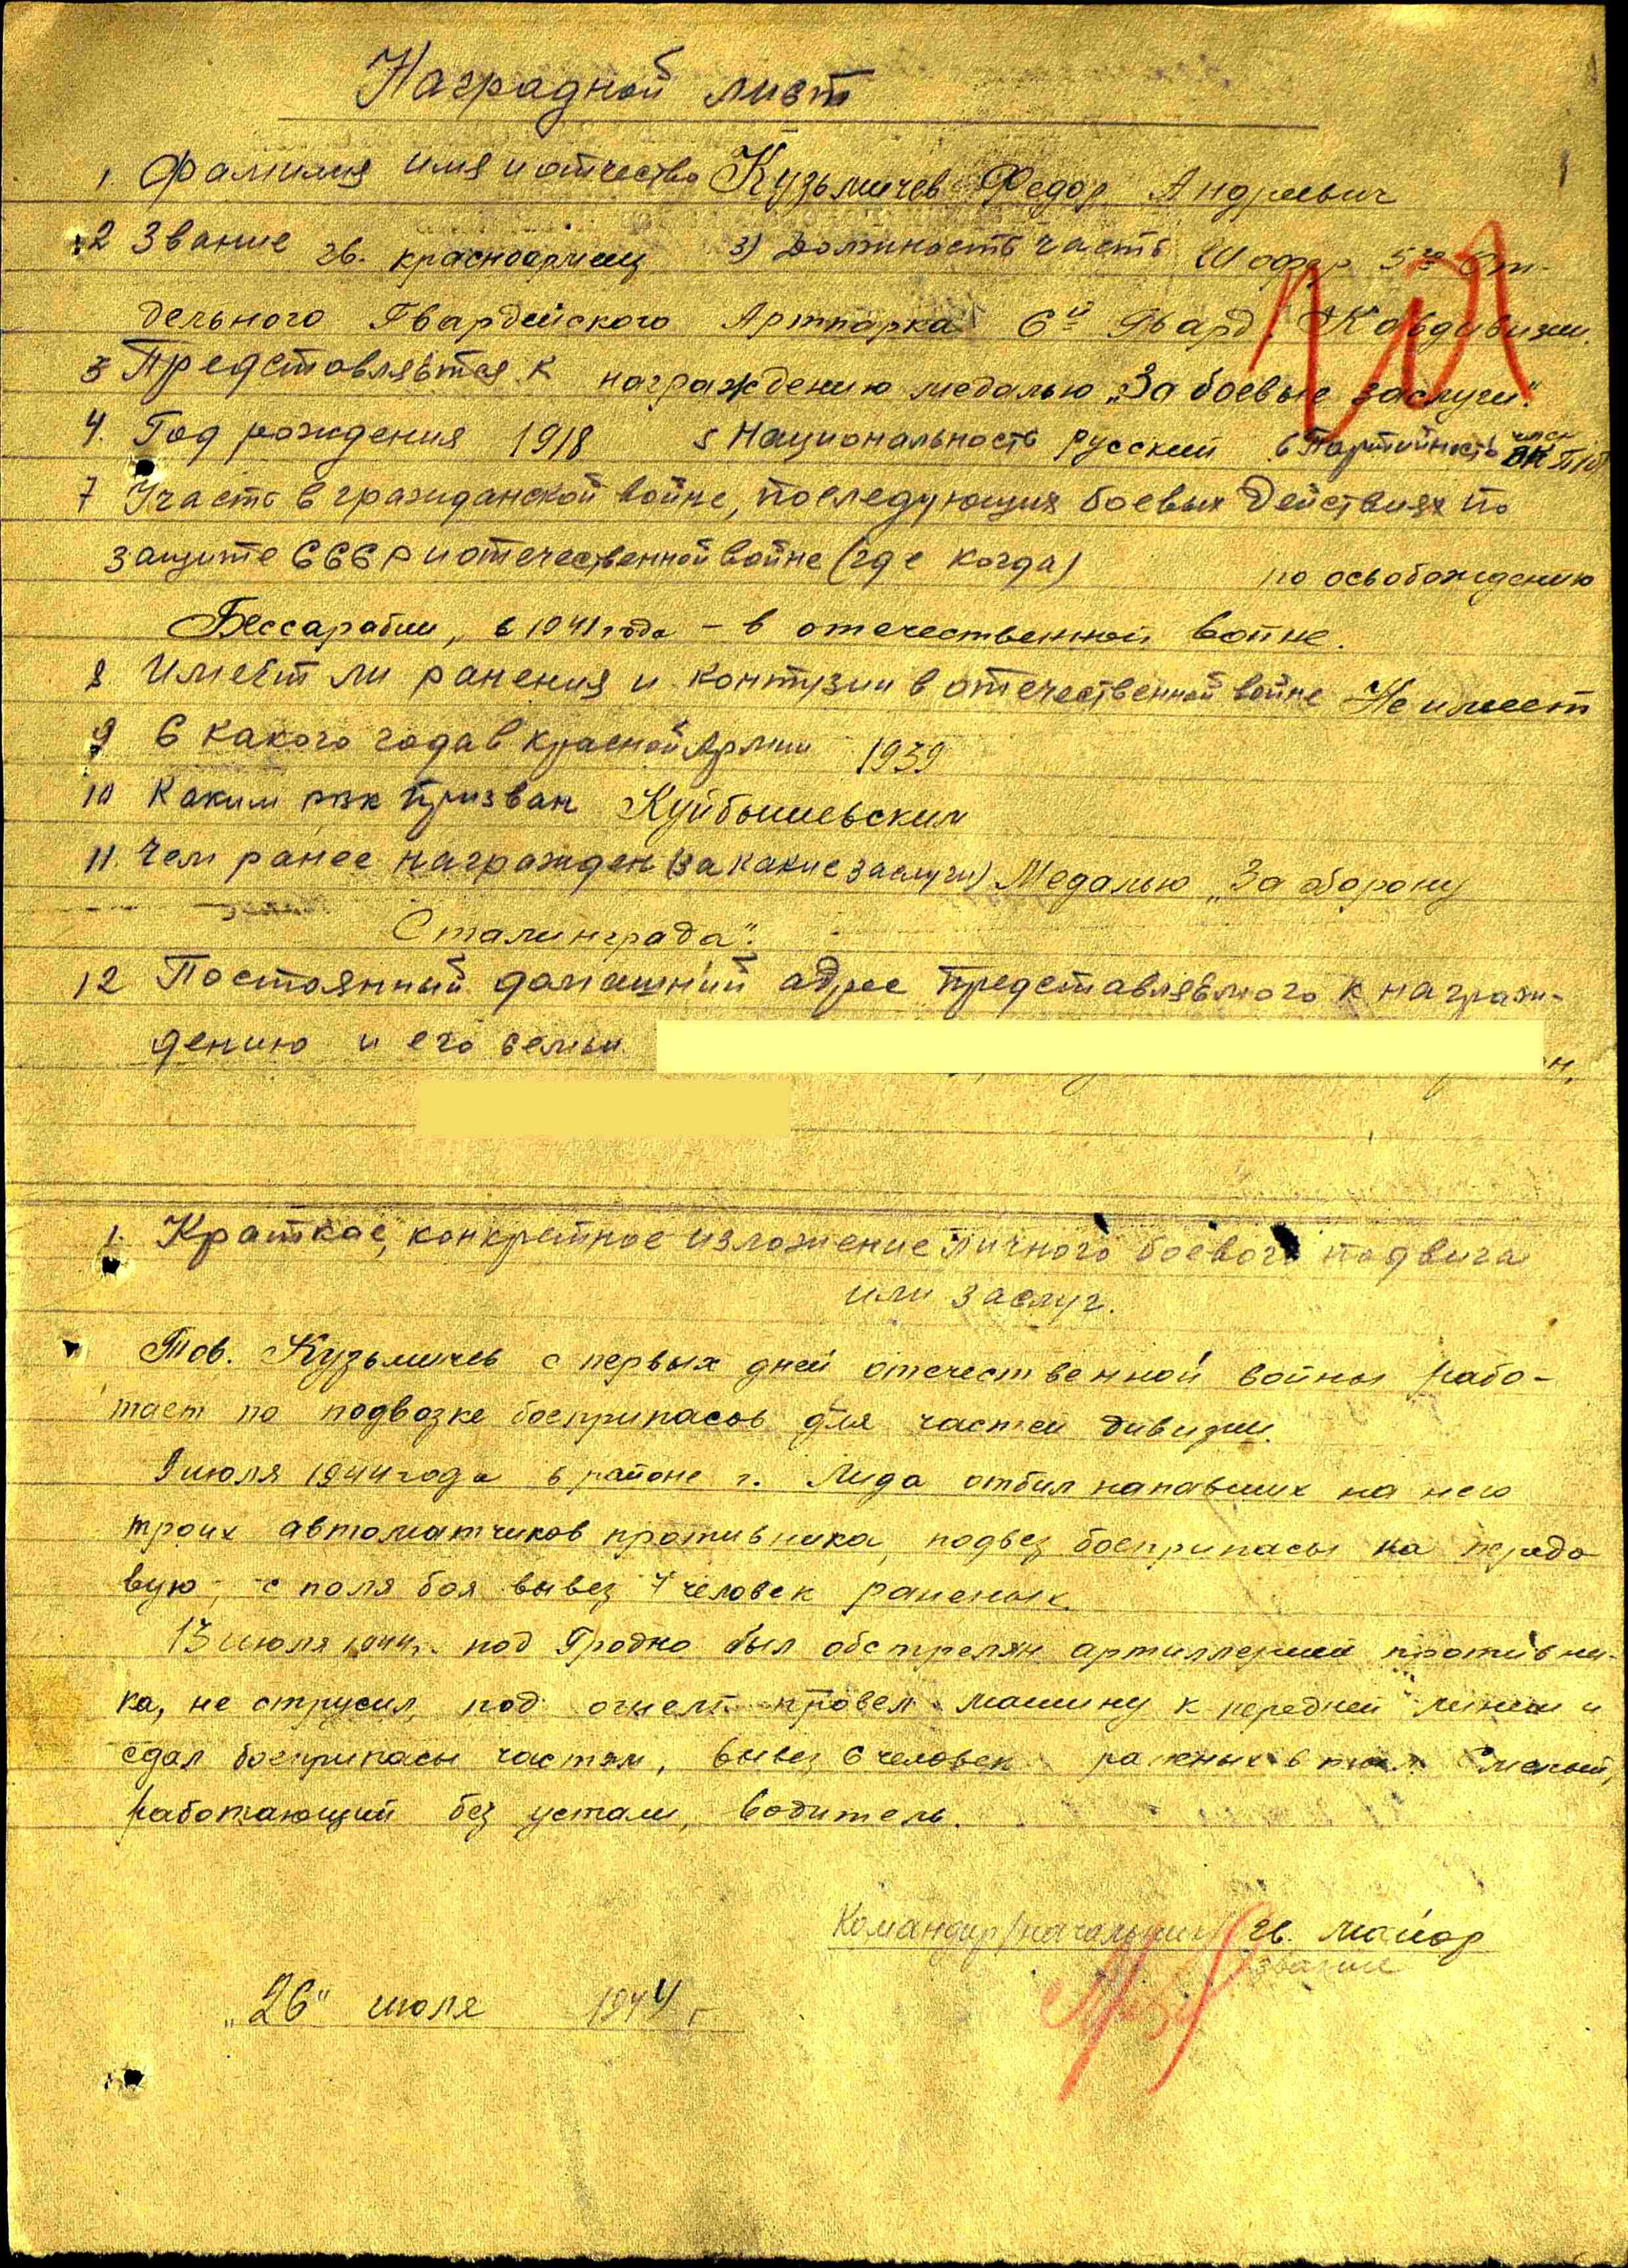 Наградной лист
1 Фамилия имя и отчество Кузьмичев Федор Андреевич
2 Звание гв. красноармеец 3) Должность часть Шофер 5го От-
дельного Гвардейского Артпарка 6й Гвард. Кавдивизии.
3 Представляется к награждению медалью „За боевые заслуги".
4. Год рождения 1918 5 Национальность русский 6 Партийность член ВКП(б)
7 Участ в гражданской войне, последующих боевых действиях по
защите СССР и отечественной войне (где когда) по освобождению
Бессарабии, с 1941 года – в отечественной войне.
8 Имеет ли ранения и контузии в отечественной войне Не имеет
9 С какого года в Красной Армии 1939
10 Каким рвк призван Куйбышевским
11. Чем ранее награжден (за какие заслуги) Медалью „За оборону
Сталинграда".
12 Постоянный домашний адрес представляемого к награж-
дению и его семьи
н,
1. Краткое, конкретное изложение личного боевого подвига
или заслуг.
Тов. Кузьмичев с первых дней отечественной войны рабо-
тает по подвозке боеприпасов для частей дивизии.
9 июля 1944 года в районе г. Лида отбил напавших на него
троих автоматчиков противника, подвез боеприпасы на передо
вую, с поля боя вывез 7 человек раненых.
13 июля 1944г. под Гродно был обстрелян артиллерией противни-
ка, не струсил, под огнем провел машину к передней линии и
сдал боеприпасы частям, вывез 6 человек раненых в тыл. Смелый,
работающий без устали, водитель.
Командир/начальник/ гв. майор
звание
„26" июля 1944 г.